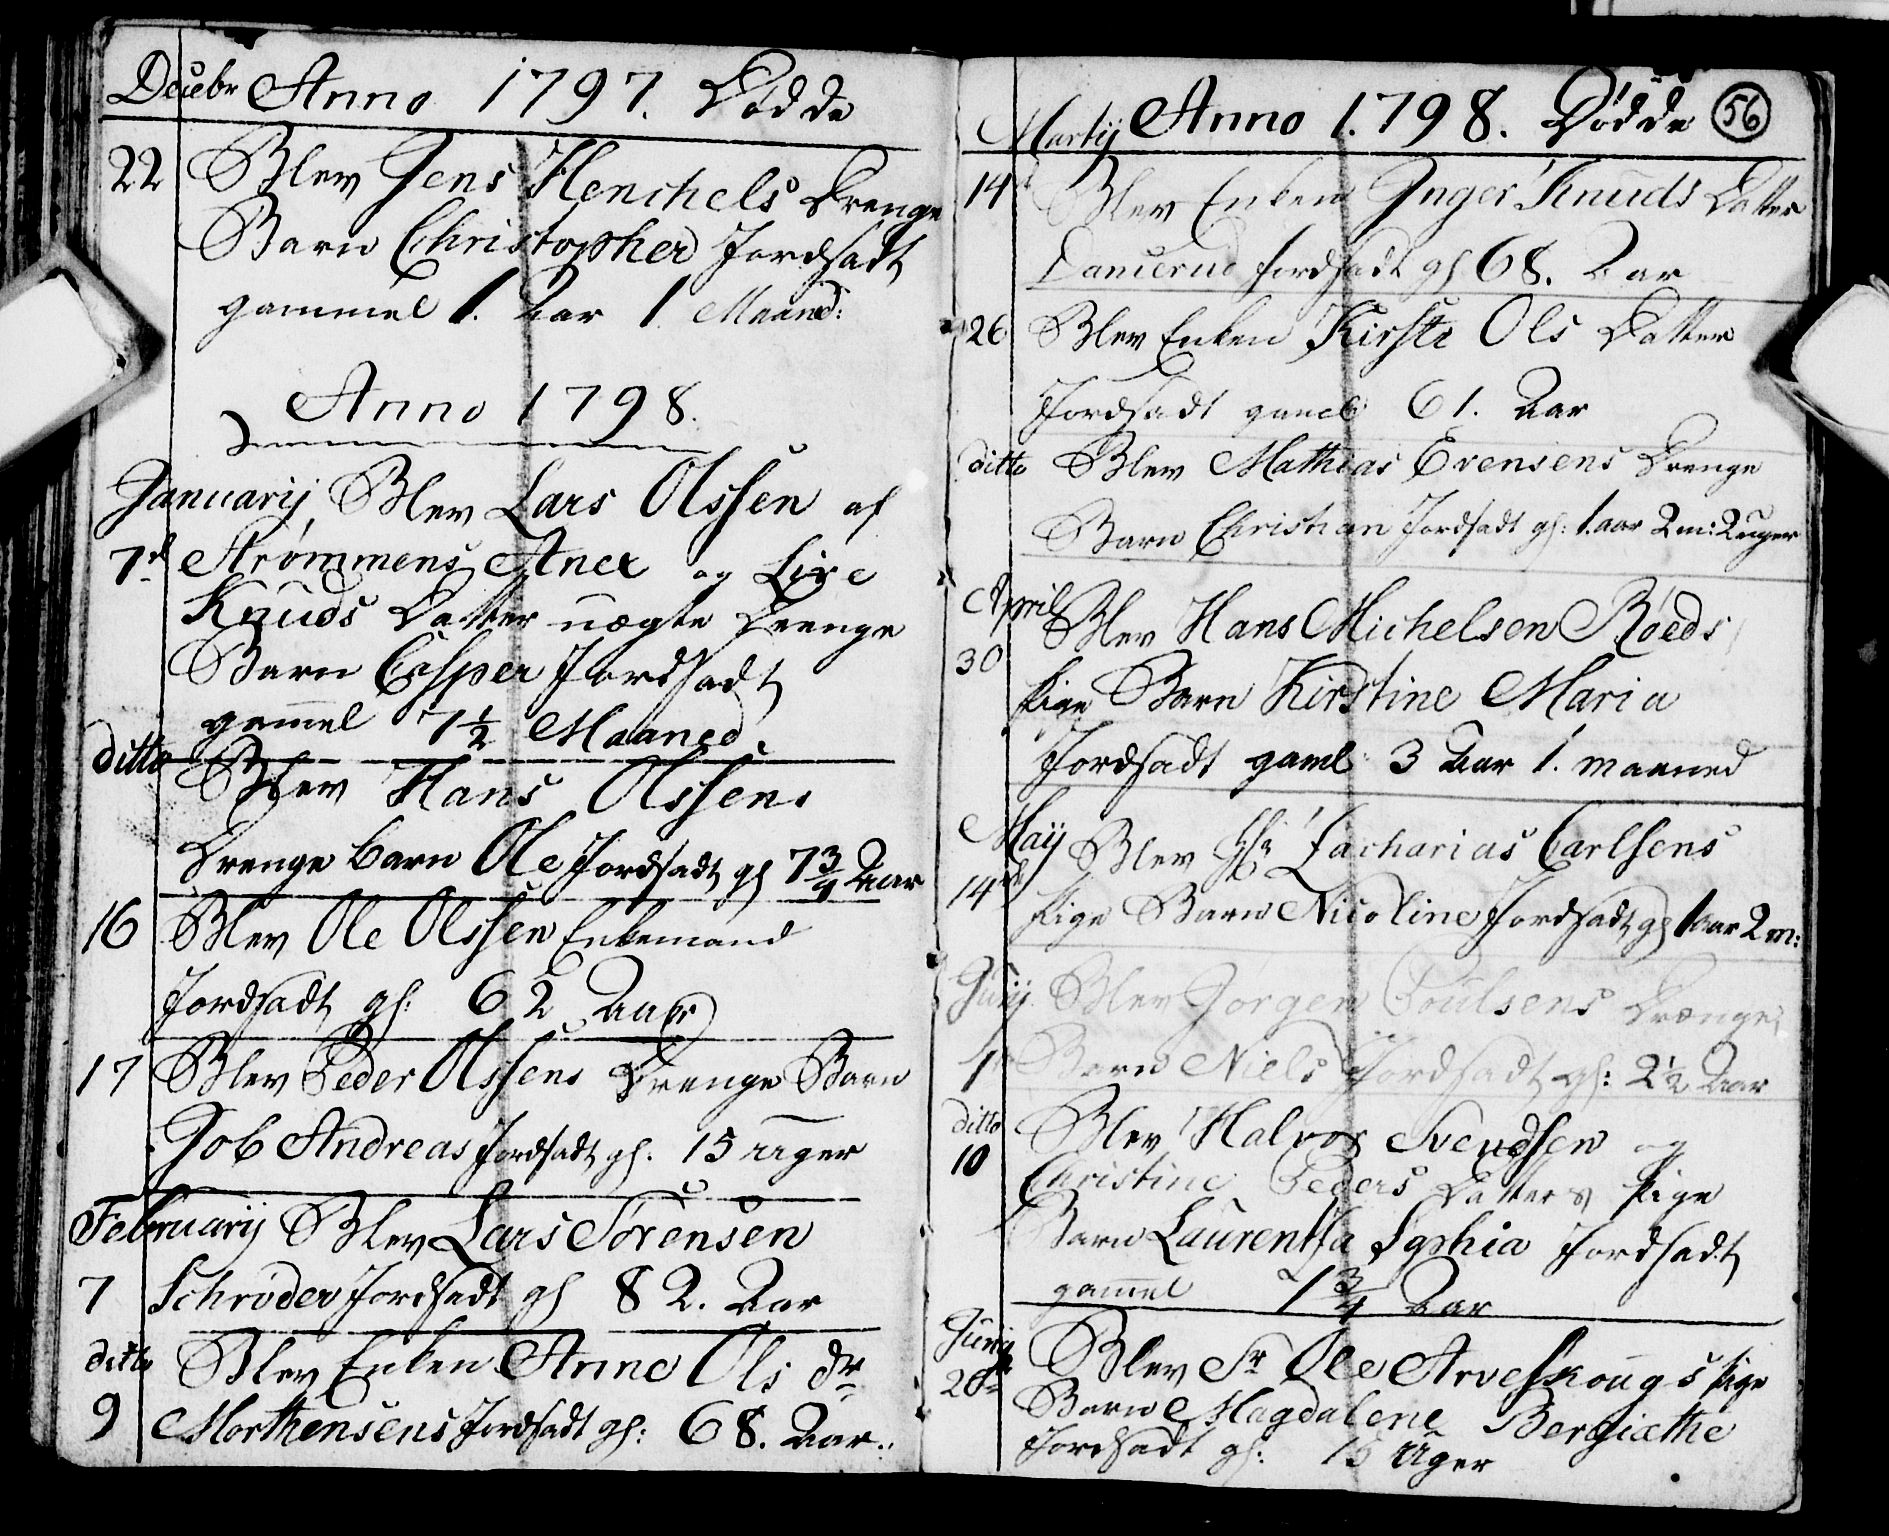 Decebr Anno 1797. Dødde
22 Blev Jens Henchels Drenge
Barn Christopher Jordsadt
gammel 1. Aar 1 Maand:
Anno 1798.
Januarij Blev Lars Olssen af
7d Strømmens og Live
Knuds Datter uægte Drenge
Barn Casper Jordsadt
gam̅el 7½ Maaned.
ditto Blev Hans Olssens
Drenge barn Ole Jordsadt gl 7¾ Aar
16 Blev Ole Olssen Enkemand
Jordsadt gl: 62 Aar
17 Blev Peder Olssens Drenge Barn
Job Andreas Jordsadt gl. 15 Uger
Februarij Blev Lars Sørensen
7 Schrøder Jordsadt gl 82. Aar
ditto Blev Enken Anne Ols dr
9 Morthensens Jordsadt gl: 68. Aar.
Martij Anno 1798. Dødde 56
14d Blev Enken Inger Knuds Datter
Jordsadt gl 68. Aar
26 Blev Enken Kirste Ols Datter
Jordsadt gamel 61. Aar
ditto Blev Mathias Evensens Drenge
Barn Christian Jordsadt gl: 1. aar 2 m: 2 uger
April Blev Hans Michelsen Røeds
30 Pige Barn Kirstine Maria
Jordsadt gaml 3 Aar 1. maaned
Maij Blev Zacharias Carlsens
14d Pige Barn Nicoline Jordsadt gl 1 aar 2 m:
Junij Blev Jørgen Poulsens Drænge
1 Barn Niels Jordsadt gl: 2½ Aar
ditto Blev Halvor Svendsen og
10 Christine Peders Datters Pige
Barn Laurentsa Sophia Jordsadt
gam̅el 1¾ Aar
Junij Blev Sr Ole Arveskougs Pige
20d Barn Magdalene Bergiæthe
Jordsadt gl: 15 Uger